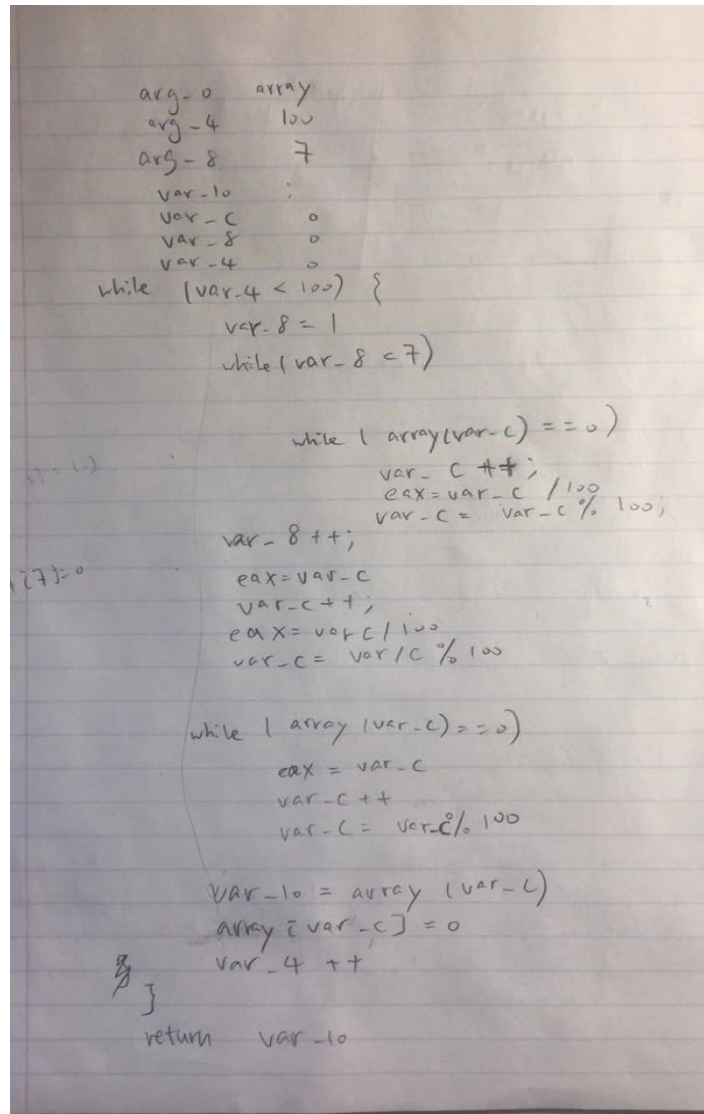 arg-0 array
arg-4 100
arg-8 7
var-10 ;
var-C 0
var-8 0
var-4 0
while (var-4 < 100) {
var-8 = 1
while (var-8 < 7)
while ( array(var-c) == 0)
var- C ++;
eax = var-c /100
var-c = var-c % 100;
var-8 ++;
[7]=0
eax = var-c
var-c ++;
eax = var c / 100
var-c = var/c % 100
while ( array (var-c) == 0)
eax = var-c
var-c ++
var-c = var-c % 100
var-10 = array (var-c)
array [var-c] = 0
var-4 ++
}
return var-10